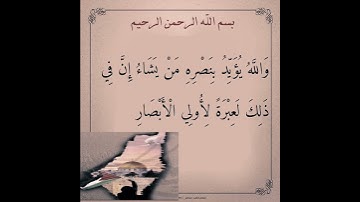 بسم الله الرحمن الرحيم
وَاللَّهُ يُؤَيِّدُ بِنَصْرِهِ مَنْ يَشَاءُ إِنَّ فِي
ذَلِكَ لَعِبْرَةً لِأُولِي الْأَبْصَارِ